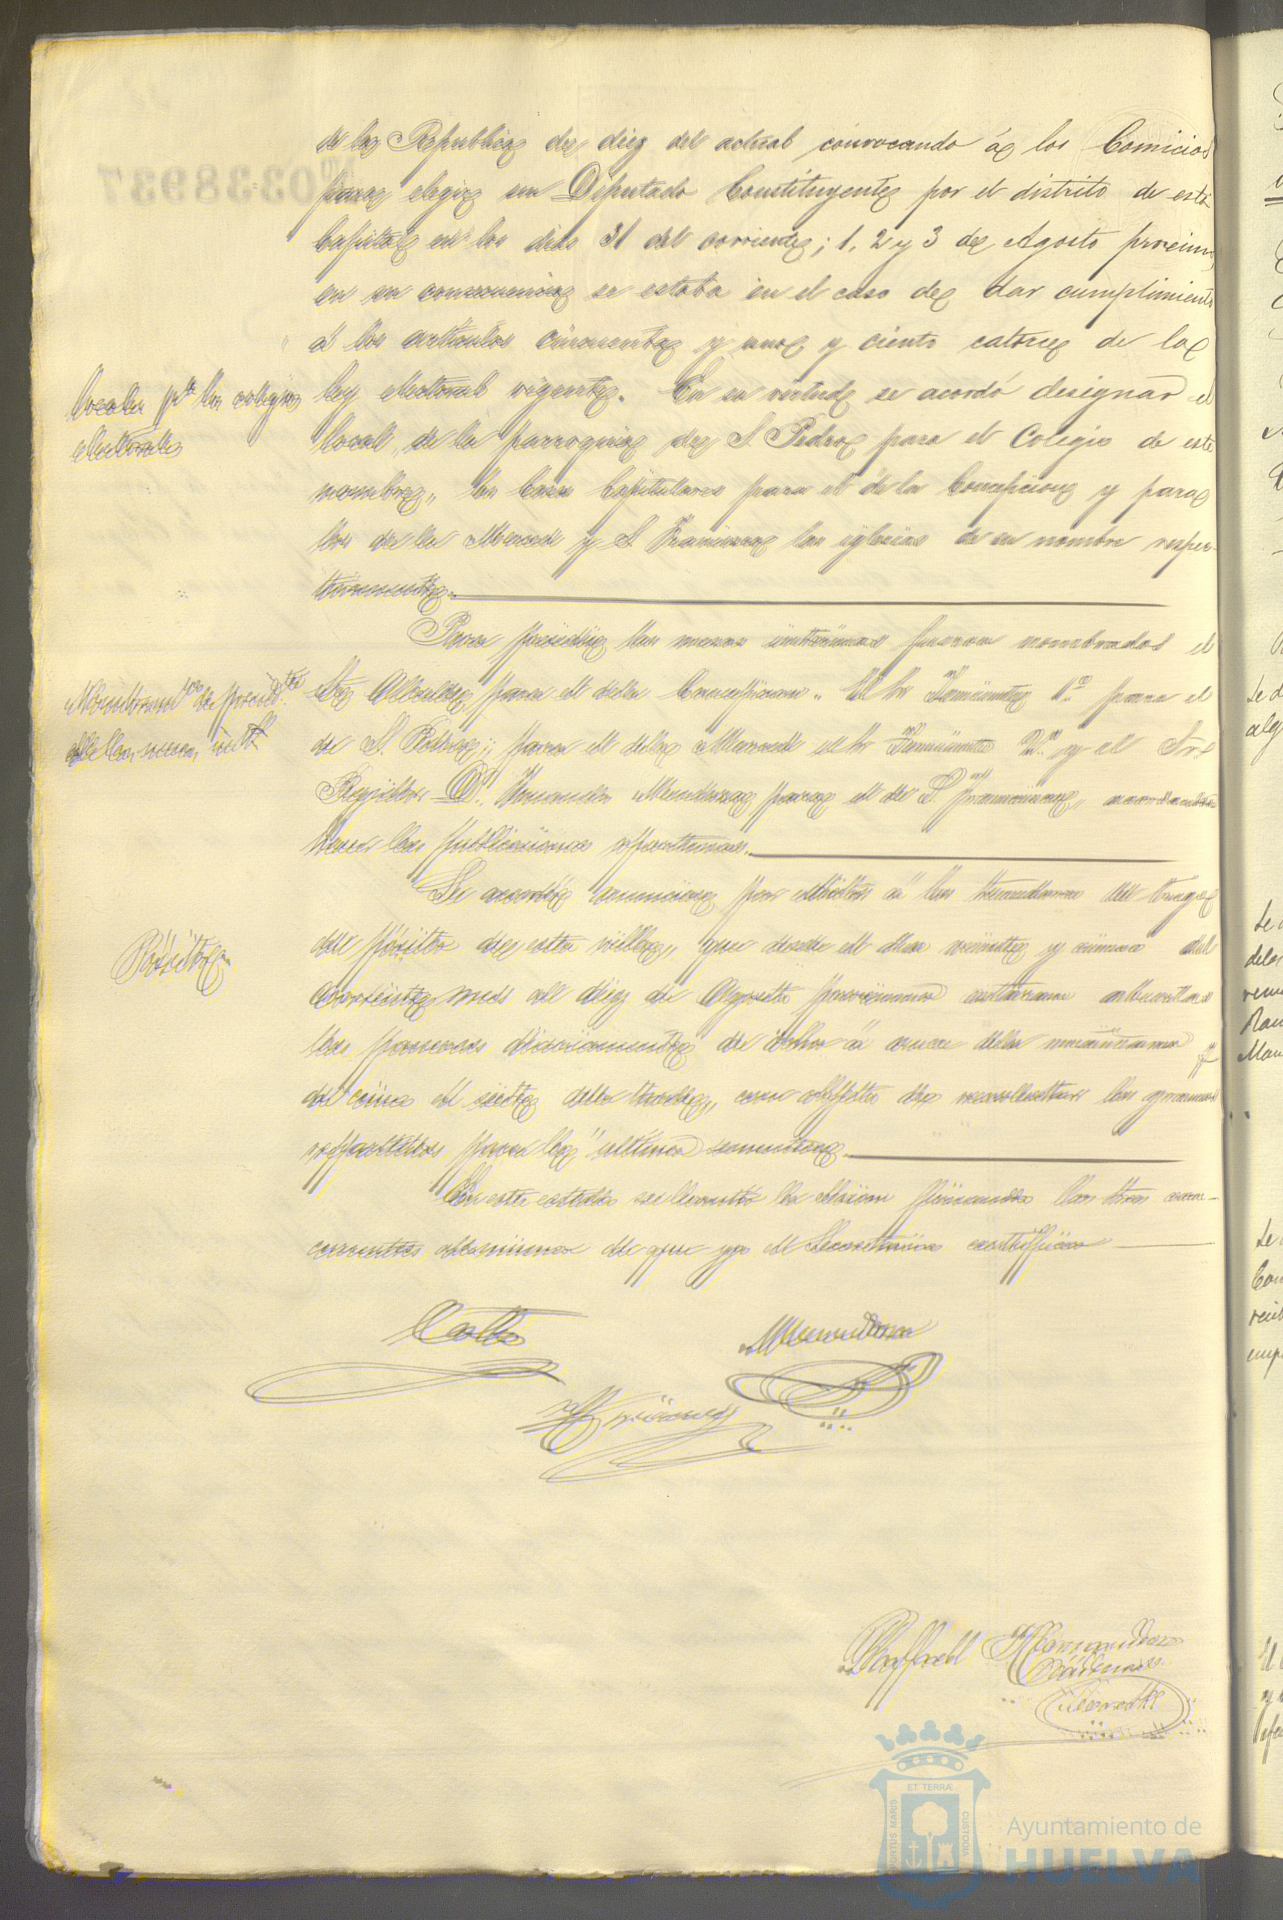 de la Republica de diez del actual convocando á los Comicios
para elegir un Diputado Constituyente por el distrito de esta
Capital en los dias 31 del corriente; 1, 2 y 3 de Agosto proximo
en su consecuencia se estaba en el caso de dar cumplimiento
á los articulos cincuenta y uno y ciento catorce de la
Locales pª los colegios
electorales
ley electoral vigente. En su virtud se acordó designar el
local de la parroquia de S. Pedro para el Colegio de este
nombre, las Casas Capitulares para el de la Concepcion y para
los de la Merced y S. Francisco las iglesias de su nombre respec-
tivamente.
Para presidir las mesas interinas fueron nombrados el
Nombramtos de presidtes
de las mesas
Sr Alcalde para el de la Concepcion. El Sr Teniente 1º para el
de S. Pedro; para el de la Merced el Sr Teniente 2º y el Sr
Regidor D. Mendoza para el de S. Francisco,
hacer las publicaciones oportunas.
Se acordó anunciar por edictos á los tenedores de trigo
Pósito
del pósito de esta villa, que desde el dia veinte y cinco del
corriente mes al diez de Agosto proximo estarán abiertas
las paneras diariamente de ocho á once de la mañana y
de cinco á siete de la tarde, con objeto de recolectar los granos
repartidos para la última sementera.
En este estado se levantó la sesion firmando los Sres con-
currentes de que yo el Secretario certifico
Mendoza
Rafael Hernandez
HUELVA
Ayuntamiento de
PORTUS MARIS
ET TERRÆ
CUSTODIA
Nº 0338937